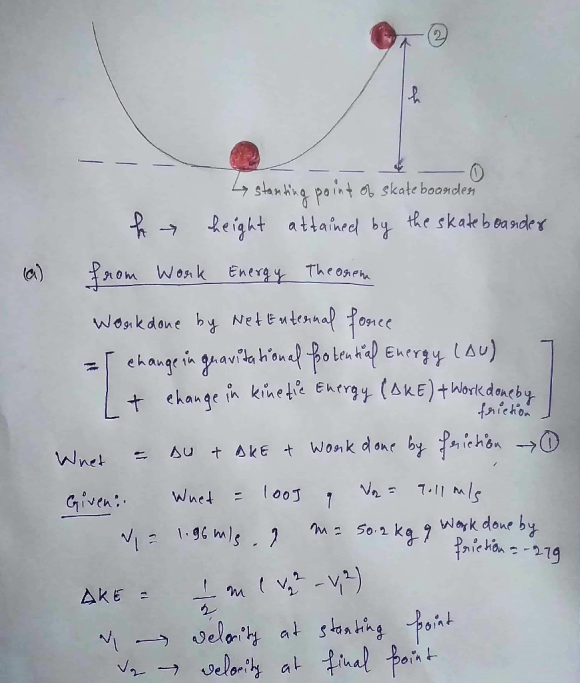 ②
h
①
↳ starting point of skateboarder
h → height attained by the skateboarder
(a) from Work Energy Theorem
Workdone by Net External force
= [ change in gravitational potential Energy (ΔU)
+ change in kinetic Energy (ΔKE) + Workdone by
friction ]
Wnet = ΔU + ΔKE + Work done by friction → ①
Given:- Wnet = 100J , V₂ = 7.11 m/s
V₁ = 1.96 m/s , m = 50.2 kg , Work done by
friction = -279
ΔKE = 1/2 m (V₂² - V₁²)
V₁ → velocity at starting point
V₂ → velocity at final point